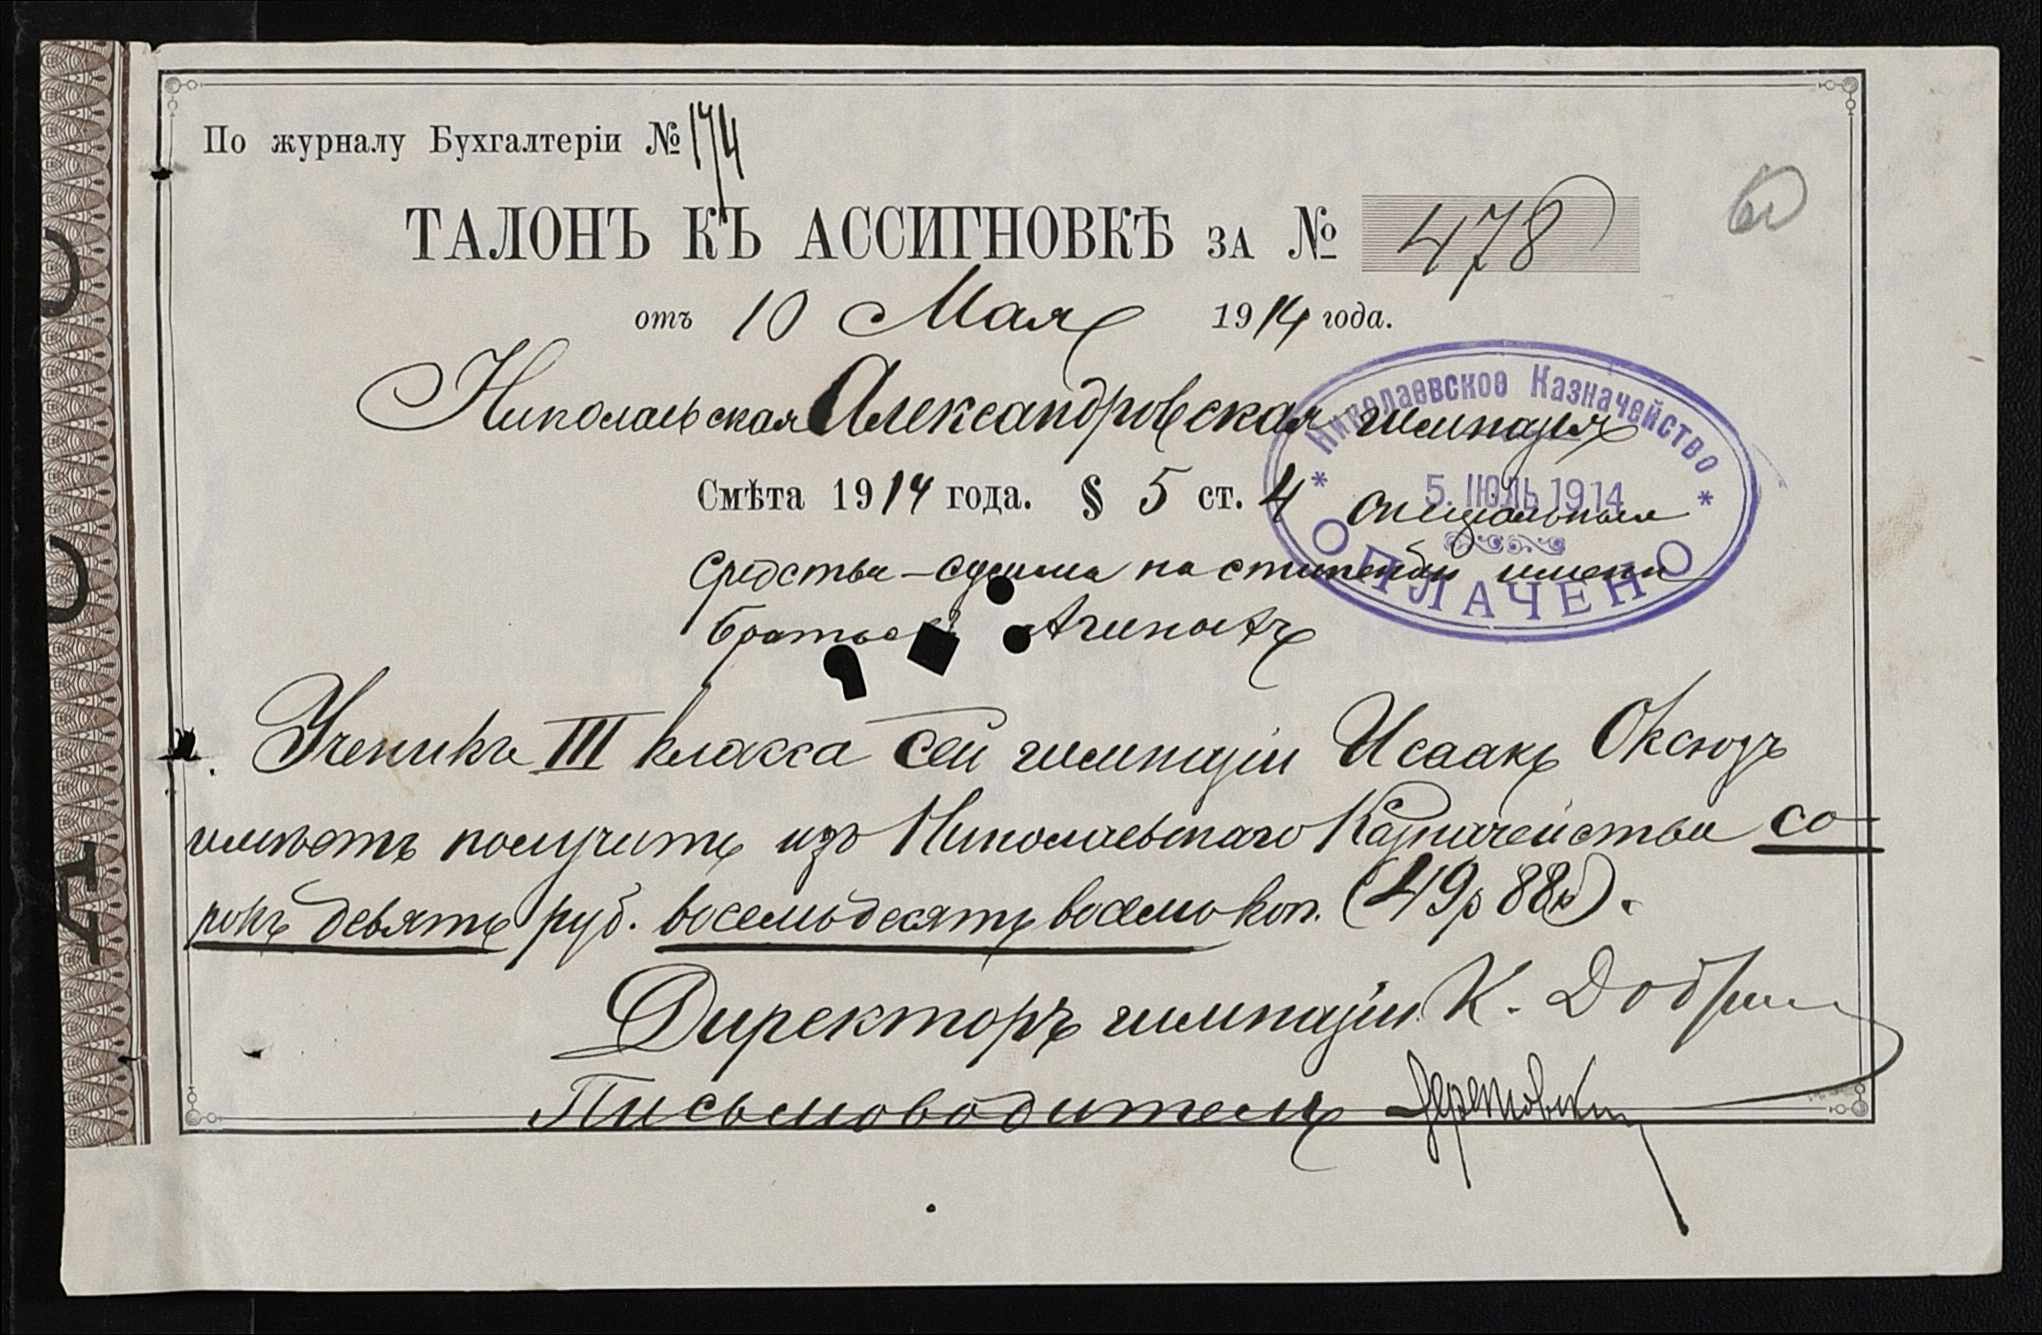 По журналу Бухгалтеріи № 174
ТАЛОНЪ КЪ АССИГНОВКѢ ЗА № 478
отъ 10 Мая 1914 года.
Николаевская Александровская гимназія
Николаевское Казначейство
Смѣта 1914 года. § 5 ст. 4 спеціальныя
5. ІЮЛЬ 1914
средства – сумма на стипендіи имени
ОПЛАЧЕНО
братьевъ
Ученикъ III класса сей гимназіи Исаакъ Оксюзъ
имѣетъ получить изъ Николаевскаго Казначейства со-
рокъ девять руб. восемьдесятъ восемь коп. (49 р 88 к).
Директоръ гимназіи К.
Письмоводитель